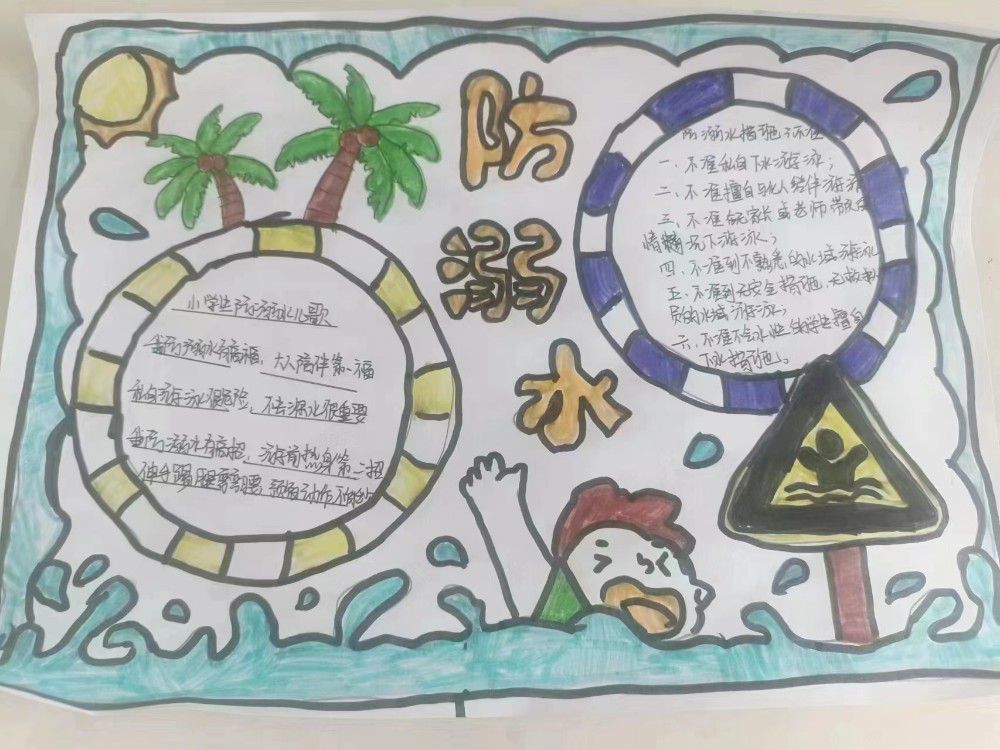 防溺水
小学生防溺水儿歌
防溺水有高招，大人陪伴第一招
私自游泳很危险，不去深水很重要
防溺水有高招，游前热身第二招
伸手踢腿弯弯腰，预备动作不能少
防溺水措施六不准
一、不准私自下水游泳；
二、不准擅自与他人结伴游泳
三、不准在无家长或老师带队的
情况下游泳；
四、不准到不熟悉的水域游泳
五、不准到无安全措施、无救护
员的水域游泳；
六、不准不会水性的学生擅自
下水措施。